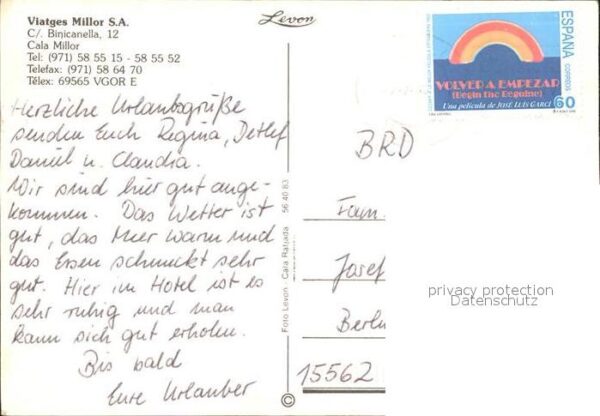 Viatges Millor S.A.
C/. Binicanella, 12
Cala Millor
Tel: (971) 58 55 15 - 58 55 52
Telefax: (971) 58 64 70
Télex: 69565 VGOR E
Levon
ESPAÑA
CORREOS
VOLVER A EMPEZAR
(Begin the Beguine)
Una película de JOSÉ LUIS GARCI
60
Herzliche Urlaubsgrüße
senden Euch Regina, Detlef
Daniel u. Claudia.
Wir sind hier gut ange-
kommen. Das Wetter ist
gut, das Meer warm und
das Essen schmeckt sehr
gut. Hier im Hotel ist es
sehr ruhig und man
kann sich gut erholen.
Bis bald
Eure Urlauber
Foto Levon - Cala Ratjada 56 40 83
©
BRD
Fam.
Josef
Berlin
15562
privacy protection
Datenschutz